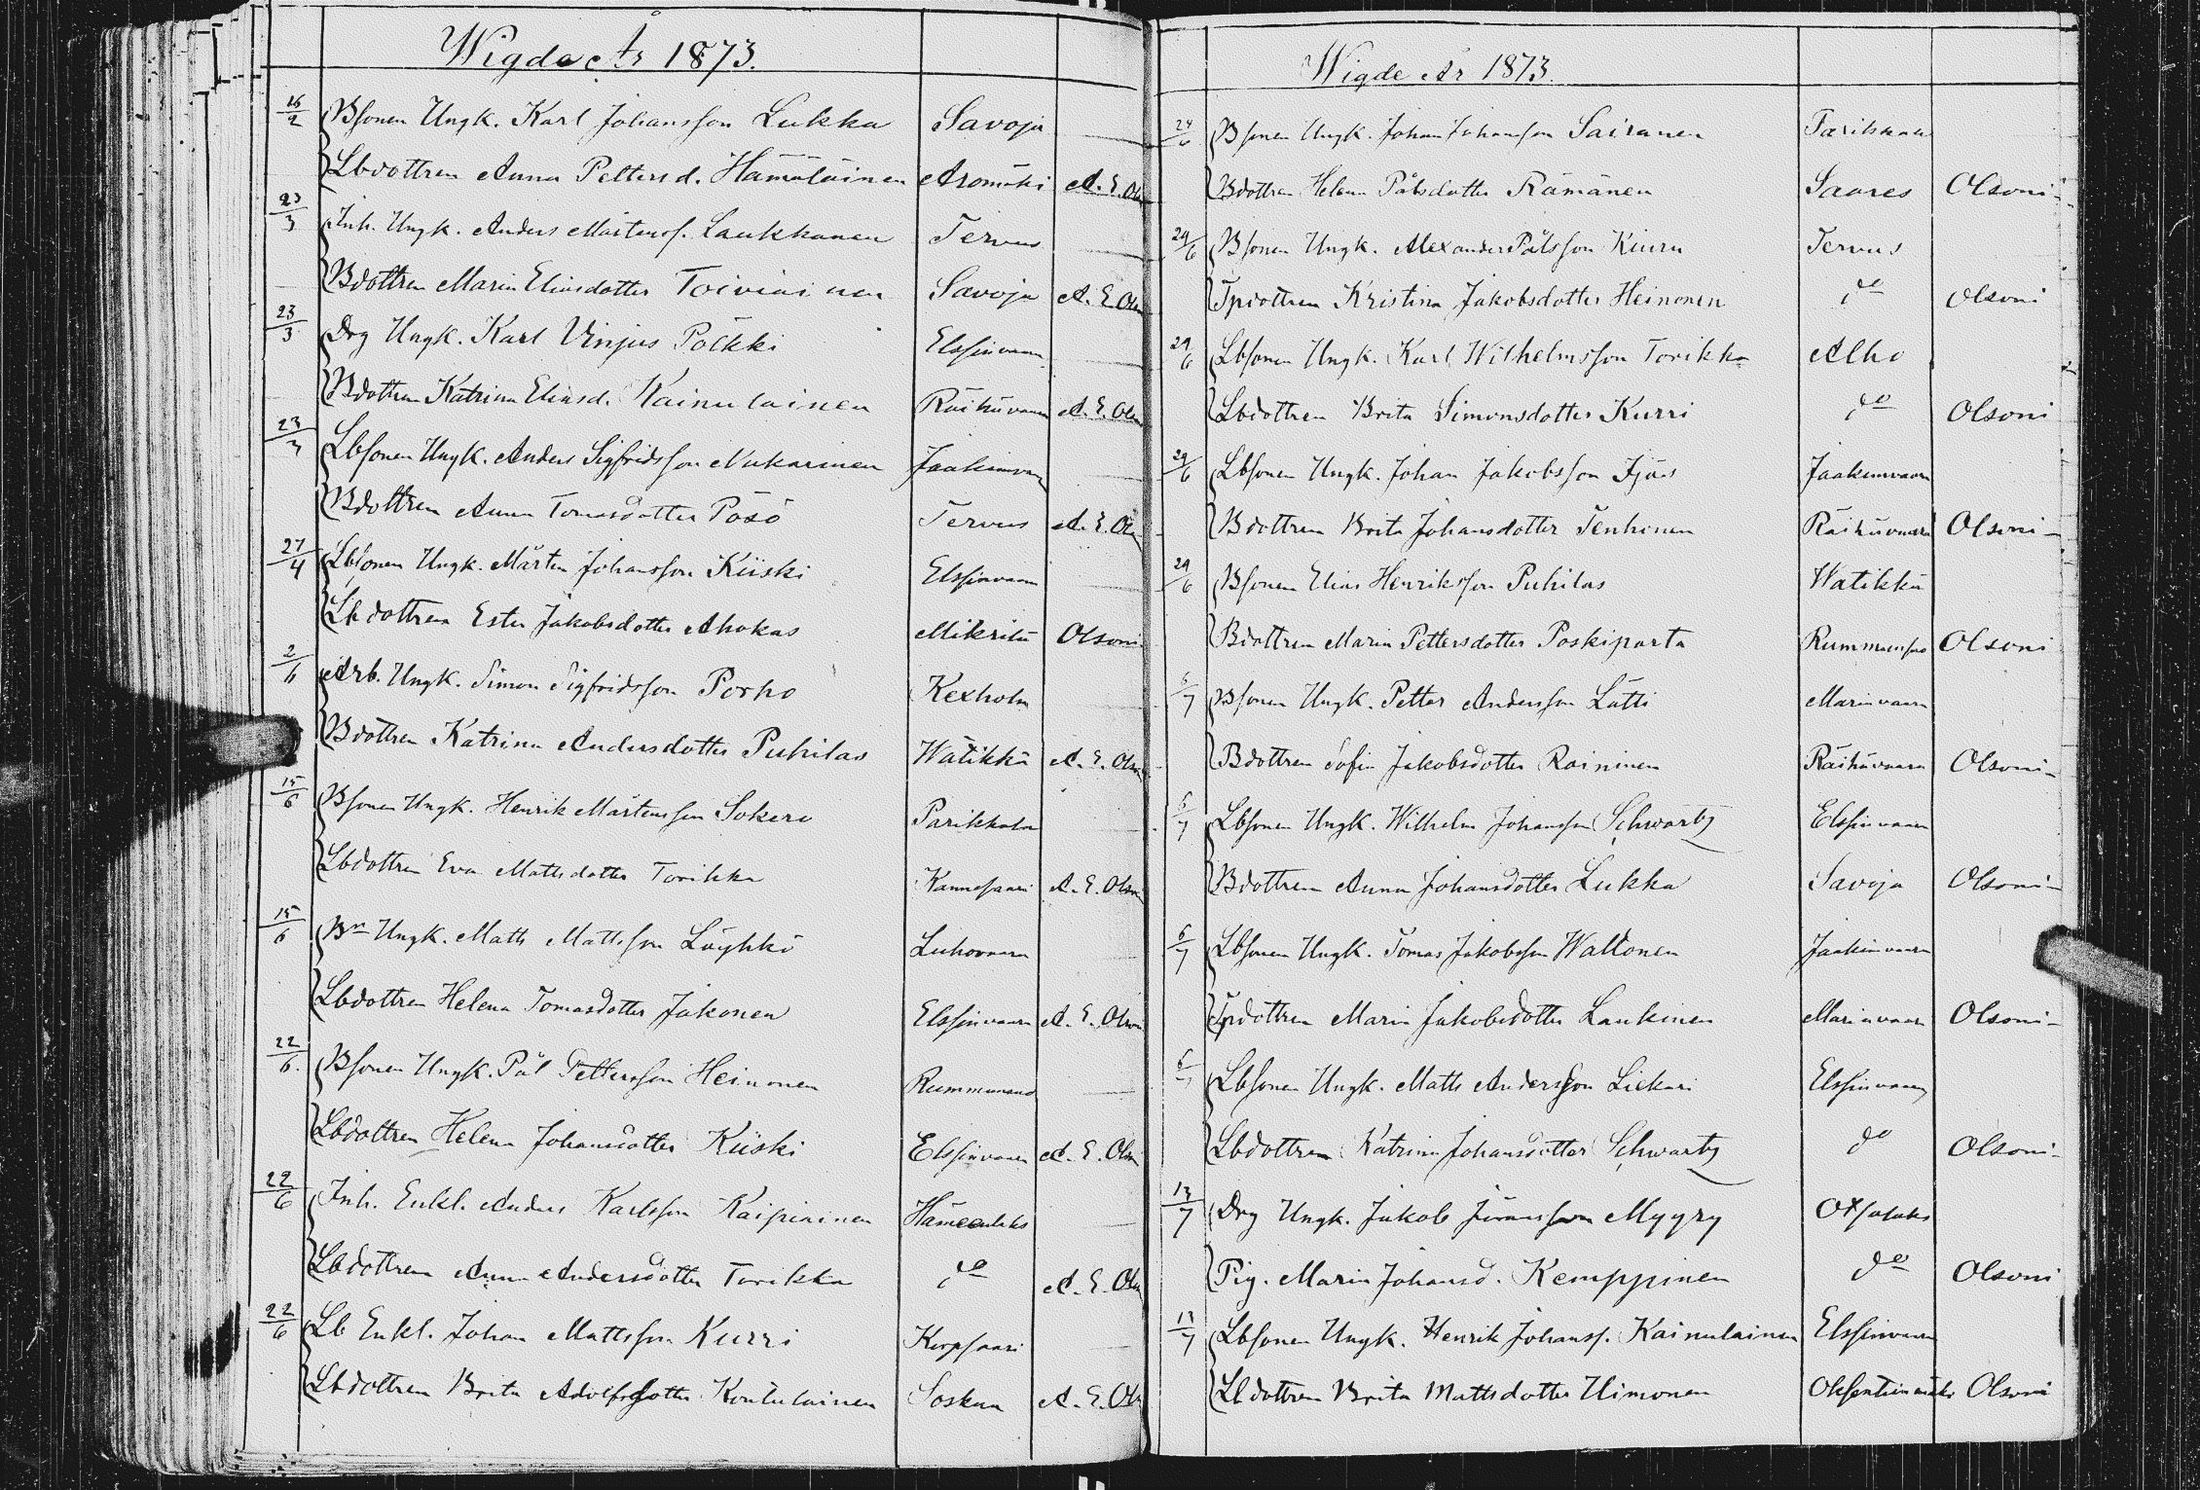 Wigde År 1873.
16/2 Bsonen Ungk. Karl Johansson Lukka Savoja
Lbdottren Anna Pettersd. Hämäläinen Aromäki A. E. Ols
23/3 Inh. Ungk. Anders Mårtensf. Laukkanen Tervus
Bdottren Maria Eliasdotter Toiviainen Savoja A. E. Ols
23/3 Drg Ungk. Karl Pölkki Elssinvaara
Bdottren Katrina Eliasd. Kainulainen Räihävaara A. E. Ols
23/3 Lbsonen Ungk. Anders Sigfridsson Nukarinen Jaakinva
Bdottren Anna Tomasdotter Pösö Tervus A. E. Ols
27/4 Lbsonen Ungk. Mårten Johansson Kiiski Elssinvaara
Lbdottren Ester Jakobsdotter Ahokas Mikrilä Olsoni
2/6 Arb. Ungk. Simon Sigfridsson Porho Kexholm
Bdottren Katrina Andersdotter Puhilas Wätikkä A. E. Ols
15/6 Bsonen Ungk. Henrik Mårtensson Sokero Parikkala
Lbdottren Eva Mattsdotter Torikka Kannassaari A. E. Olson
15/6 Bn Ungk. Matts Mattsson Löyhkö Luhovaara
Lbdottren Helena Tomasdotter Jakonen Elssinvaara A. E. Olson
22/6. Bsonen Ungk. Pål Pettersson Heinonen
Lbdottren Helena Johansdotter Kiiski Elssinvaara A. E. Olson
22/6 Inh. Enkl. Anders Karlsson Kaipiainen
Lbdottren Anna Andersdotter Torikka do A. E. Ols
22/6 Lb Enkl. Johan Mattsson Kurri Korpsaari
Lbdottren Brita Adolfsdotter Kontulainen Soskua A. E. Ols
Wigde År 1873.
24/6 Bsonen Ungk. Johan Johansson Sairanen
Bdottren Helena Pålsdotter Rämänen Saares Olsoni
24/6 Bsonen Ungk. Alexander Pålsson Kiuru Tervus
Tpdottren Kristina Jakobsdotter Heinonen do Olsoni
24/6 Lbsonen Ungk. Karl Wilhelmsson Torikka Alho
Lbdottren Brita Simonsdotter Kurri do Olsoni
24/6 Lbsonen Ungk. Johan Jakobsson Ijäs Jaakinvaara
Bdottren Brita Johansdotter Tenhonen Räihävaara Olsoni
24/6 Bsonen Elias Henriksson Puhilas Watikkä
Bdottren Maria Pettersdotter Poskiparta Olsoni
6/7 Bsonen Ungk. Petter Andersson Lätti Marinvaara
Bdottren Sofia Jakobsdotter Roininen Räihävaara Olsoni
6/7 Lbsonen Ungk. Wilhelm Johansson Schwartz Elssinvaara
Bdottren Anna Johansdotter Lukka Savoja Olsoni
6/7 Lbsonen Ungk. Tomas Jakobsson Waltonen Jaakinvaara
Tpdottren Maria Jakobsdotter Laukinen Marinvaara Olsoni
6/7 Lbsonen Ungk. Matts Andersson Liekari Elssinvaara
Lbdottren Katrina Johansdotter Schwartz do Olsoni
13/7 Drg Ungk. Jakob Göransson Myyry
Pig. Maria Johansd. Kemppinen do Olsoni
13/7 Lbsonen Ungk. Henrik Johanss. Kainulainen Elssinvaara
Lbdottren Brita Mattsdotter Uimonen Olsoni